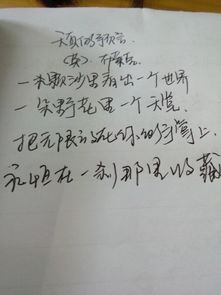 天真的预言
(英). 布莱克
一颗沙里看出一个世界
一朵野花里一个天堂.
把无限放在你的手掌上.
永恒在一刹那里收藏